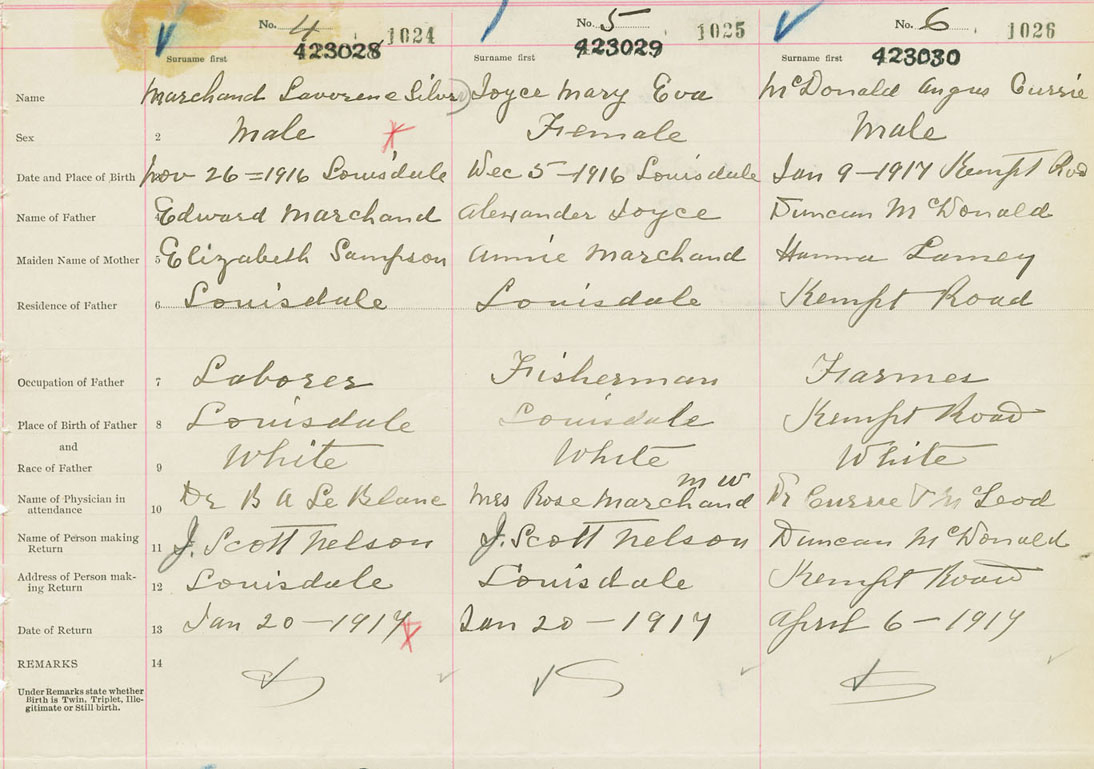 No. 4 1024 No. 5 1025 No. 6 1026
423028 423029 423030
Surname first Surname first Surname first
Name Marchand Laverene Silver Joyce Mary Eva McDonald Angus Currie
Sex 2 Male Female Male
Date and Place of Birth Nov 26=1916 Louisdale Dec 5-1916 Louisdale Jan 9-1917 Kempt Road
Name of Father 4 Edward Marchand Alexander Joyce Duncan McDonald
Maiden Name of Mother 5 Elizabeth Sampson Annie Marchand Hanna Lamey
Residence of Father 6 Louisdale Louisdale Kempt Road
Occupation of Father 7 Laborer Fisherman Farmer
Place of Birth of Father 8 Louisdale Louisdale Kempt Road
and
Race of Father 9 White White White
Name of Physician in attendance 10 Dr B A Le Blanc Mrs Rose Marchand M W Dr Currie & McLeod
Name of Person making Return 11 J. Scott Nelson J. Scott Nelson Duncan McDonald
Address of Person mak-ing Return 12 Louisdale Louisdale Kempt Road
Date of Return 13 Jan 20-1917 Jan 20-1917 April 6-1917
REMARKS 14
Under Remarks state whether
Birth is Twin, Triplet, Ille-
gitimate or Still birth.